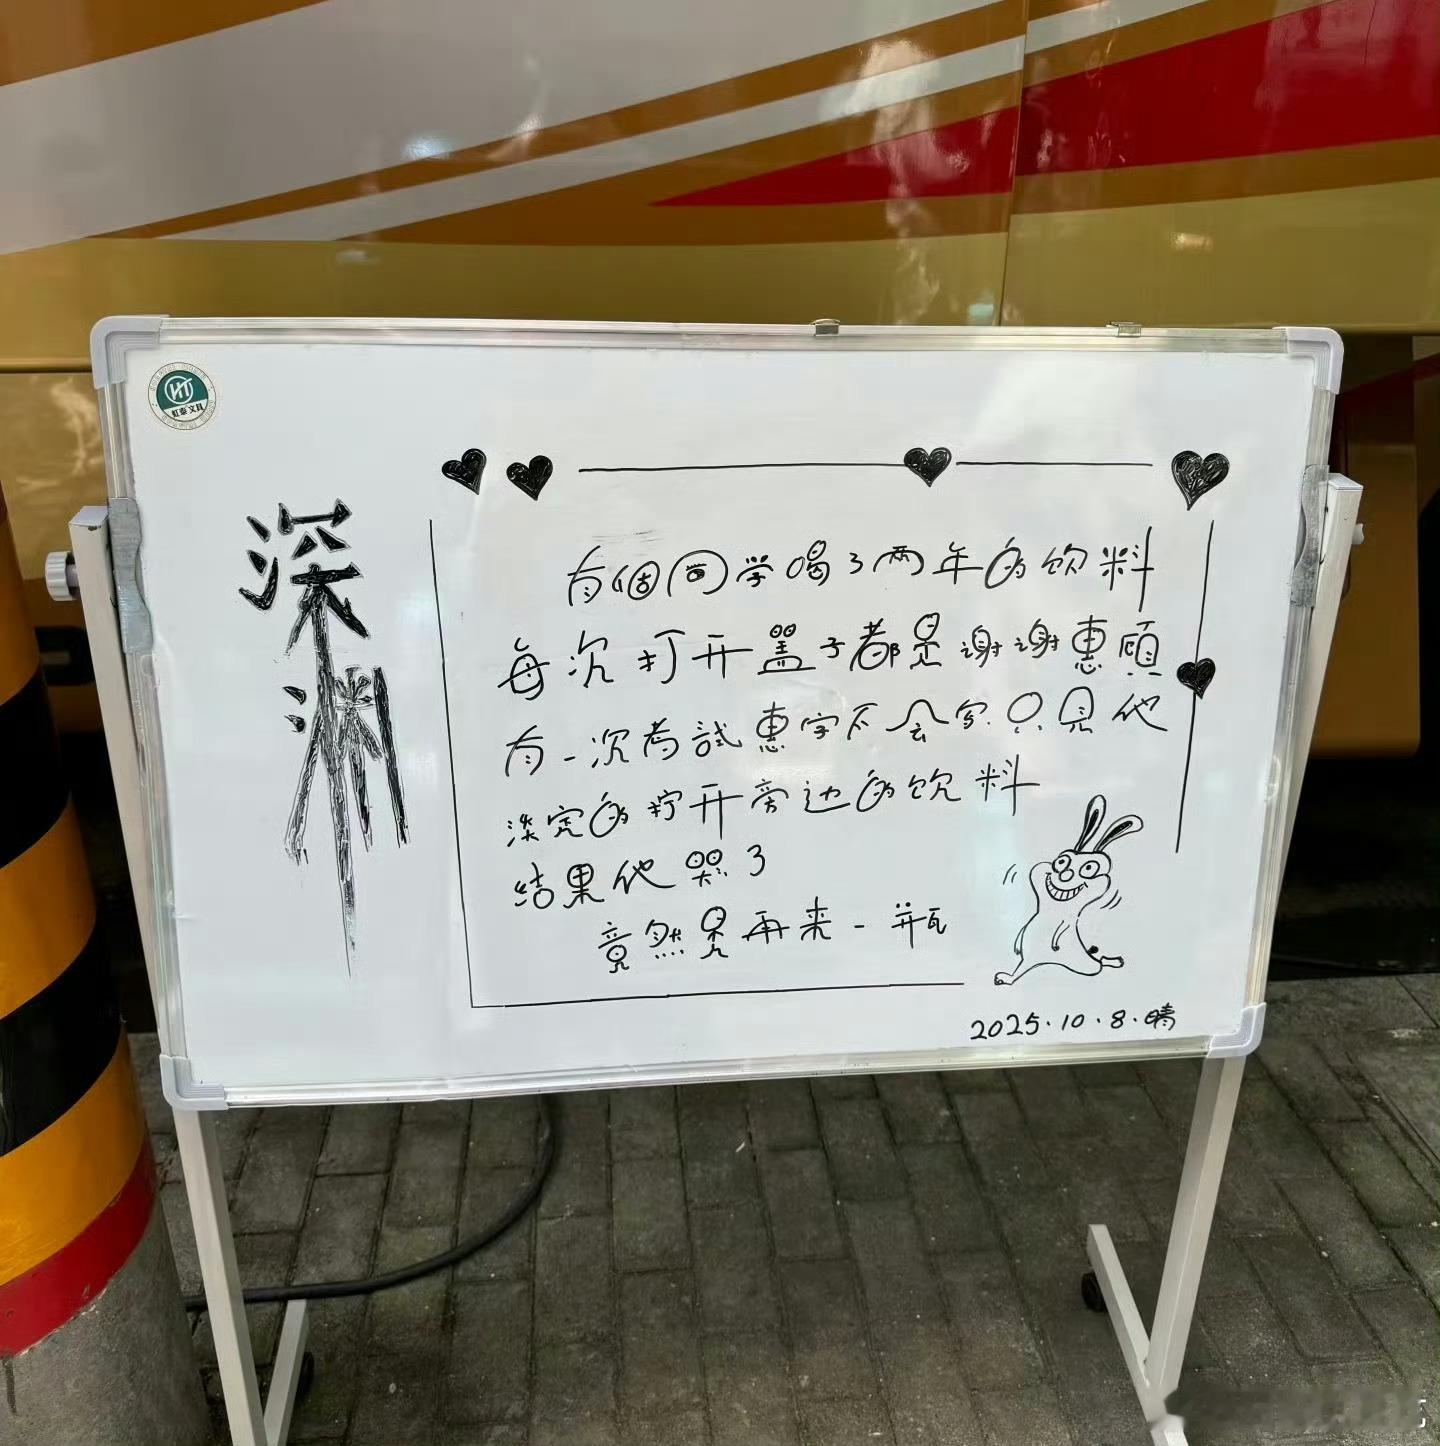 虹泰文具
深渊
有個同学喝了两年的饮料
每次打开盖子都是谢谢惠顾
有一次考試惠字不会写.只見他
淡定的拧开旁边的饮料
结果他哭了
竟然是再来一瓶
2025.10.8.晴